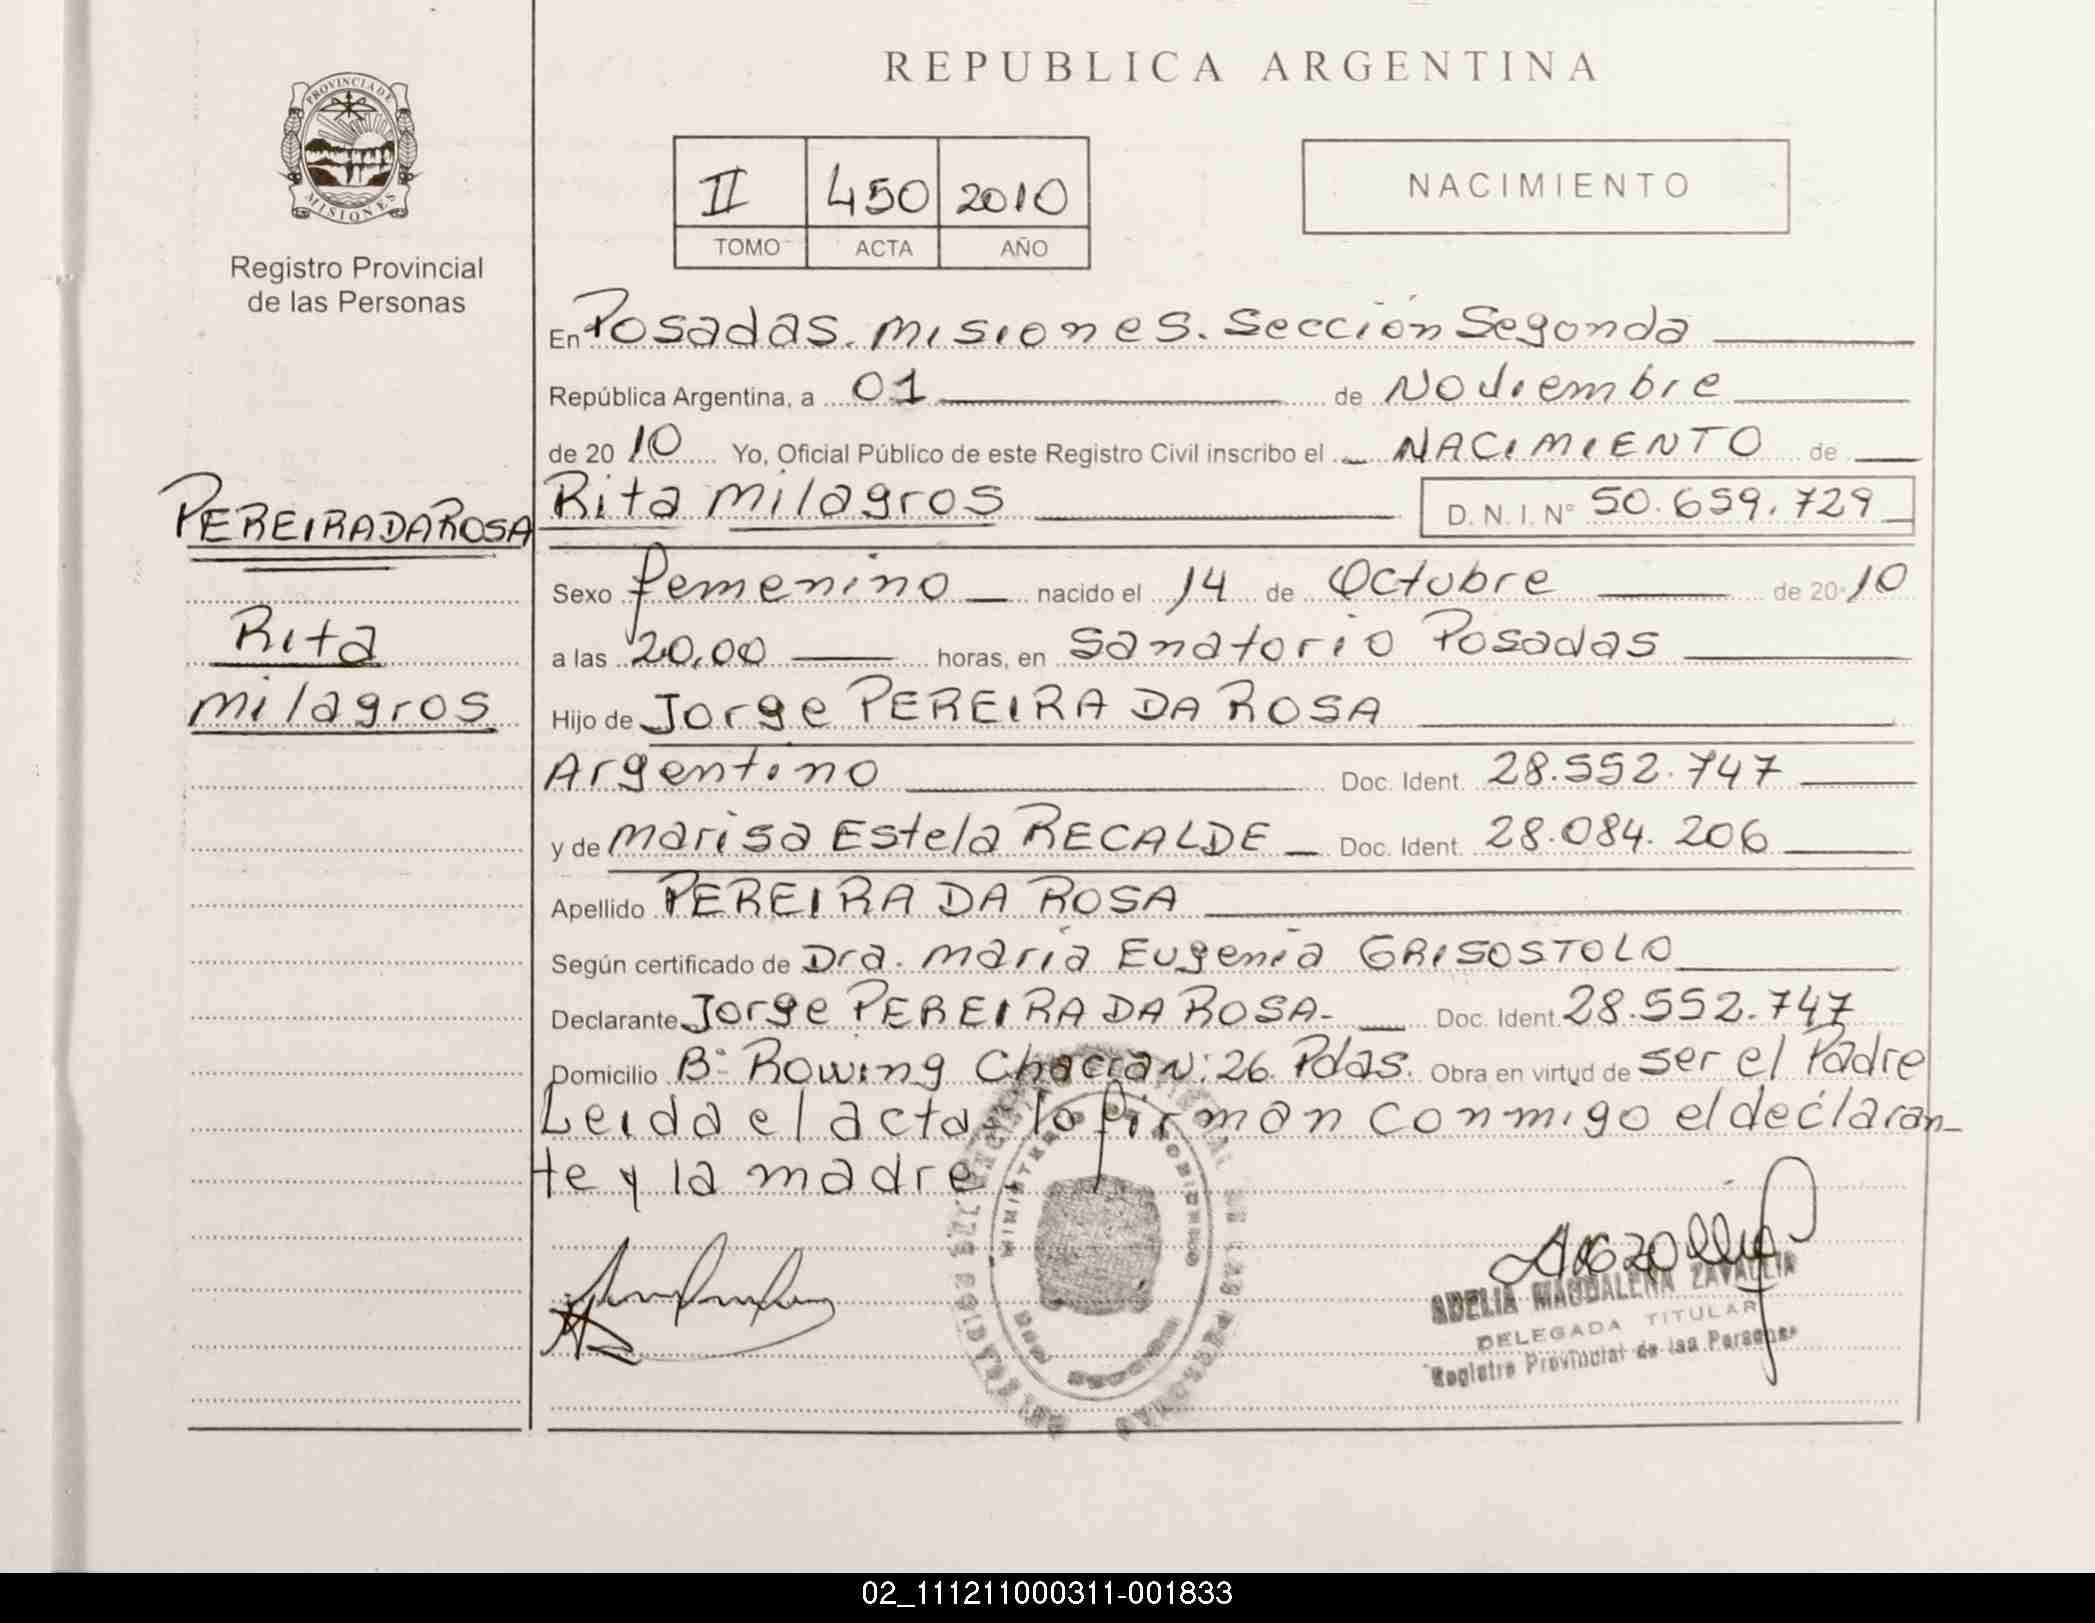 REPUBLICA ARGENTINA
PROVINCIA DE
MISIONES
Registro Provincial
de las Personas
II 450 2010
TOMO ACTA AÑO
NACIMIENTO
En Posadas. Misiones. Sección Segonda
República Argentina, a 01 de Noviembre
de 20 10 Yo, Oficial Público de este Registro Civil inscribo el NACIMIENTO de
PEREIRA DA ROSA
Rita Milagros D. N. I. N° 50.659.729
Sexo femenino nacido el 14 de Octubre de 20 10
Rita
a las 20,00 horas, en Sanatorio Posadas
milagros
Hijo de Jorge PEREIRA DA ROSA
Argentino Doc. Ident. 28.552.747
y de Marisa Estela RECALDE Doc. Ident. 28.084.206
Apellido PEREIRA DA ROSA
Según certificado de Dra. María Eugenia GRISOSTOLO
Declarante Jorge PEREIRA DA ROSA- Doc. Ident. 28.552.747
Domicilio B: Rowing Chacra N: 26 Pdas. Obra en virtud de ser el Padre
Leida el acta lo firman conmigo el declaran-
te y la madre
MINISTERIO GOBIERNO
ADELIA MAGDALENA ZAVALLIA
DELEGADA TITULAR
Registro Provincial de las Personas
02_111211000311-001833